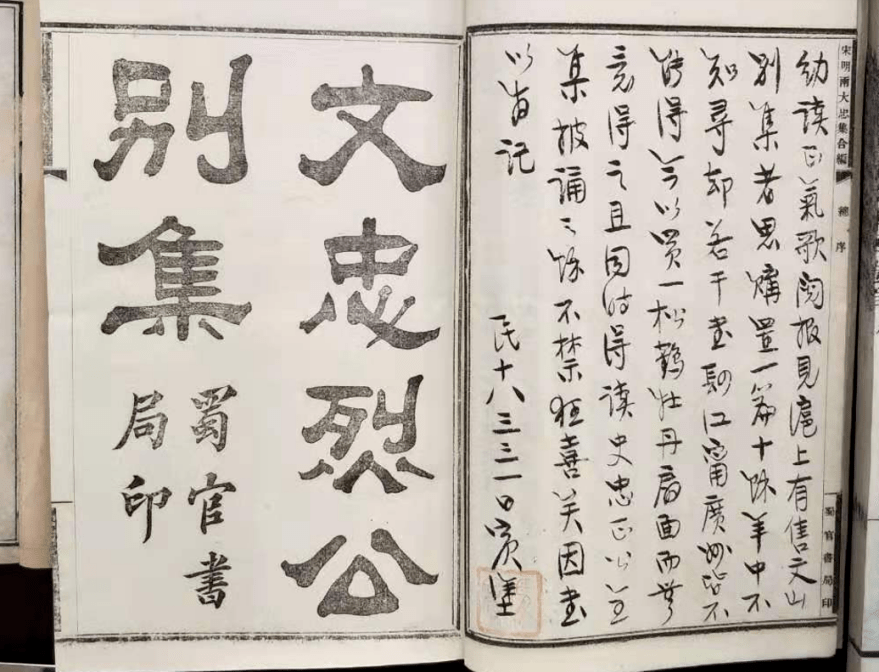 宋明兩大忠集合編 總序 蜀官書局印
幼讀正氣歌閱報見滬上有售文山
別集者思購置一篇十餘年中不
知尋却若干書肆江甯廣皆不
能得今以買一松鶴牡丹扇面而無
意得之且同時得讀史忠正公全
集披誦之餘不禁狂喜矣因書
以記
民十八三三一日
文忠烈公
別集
蜀官書
局印